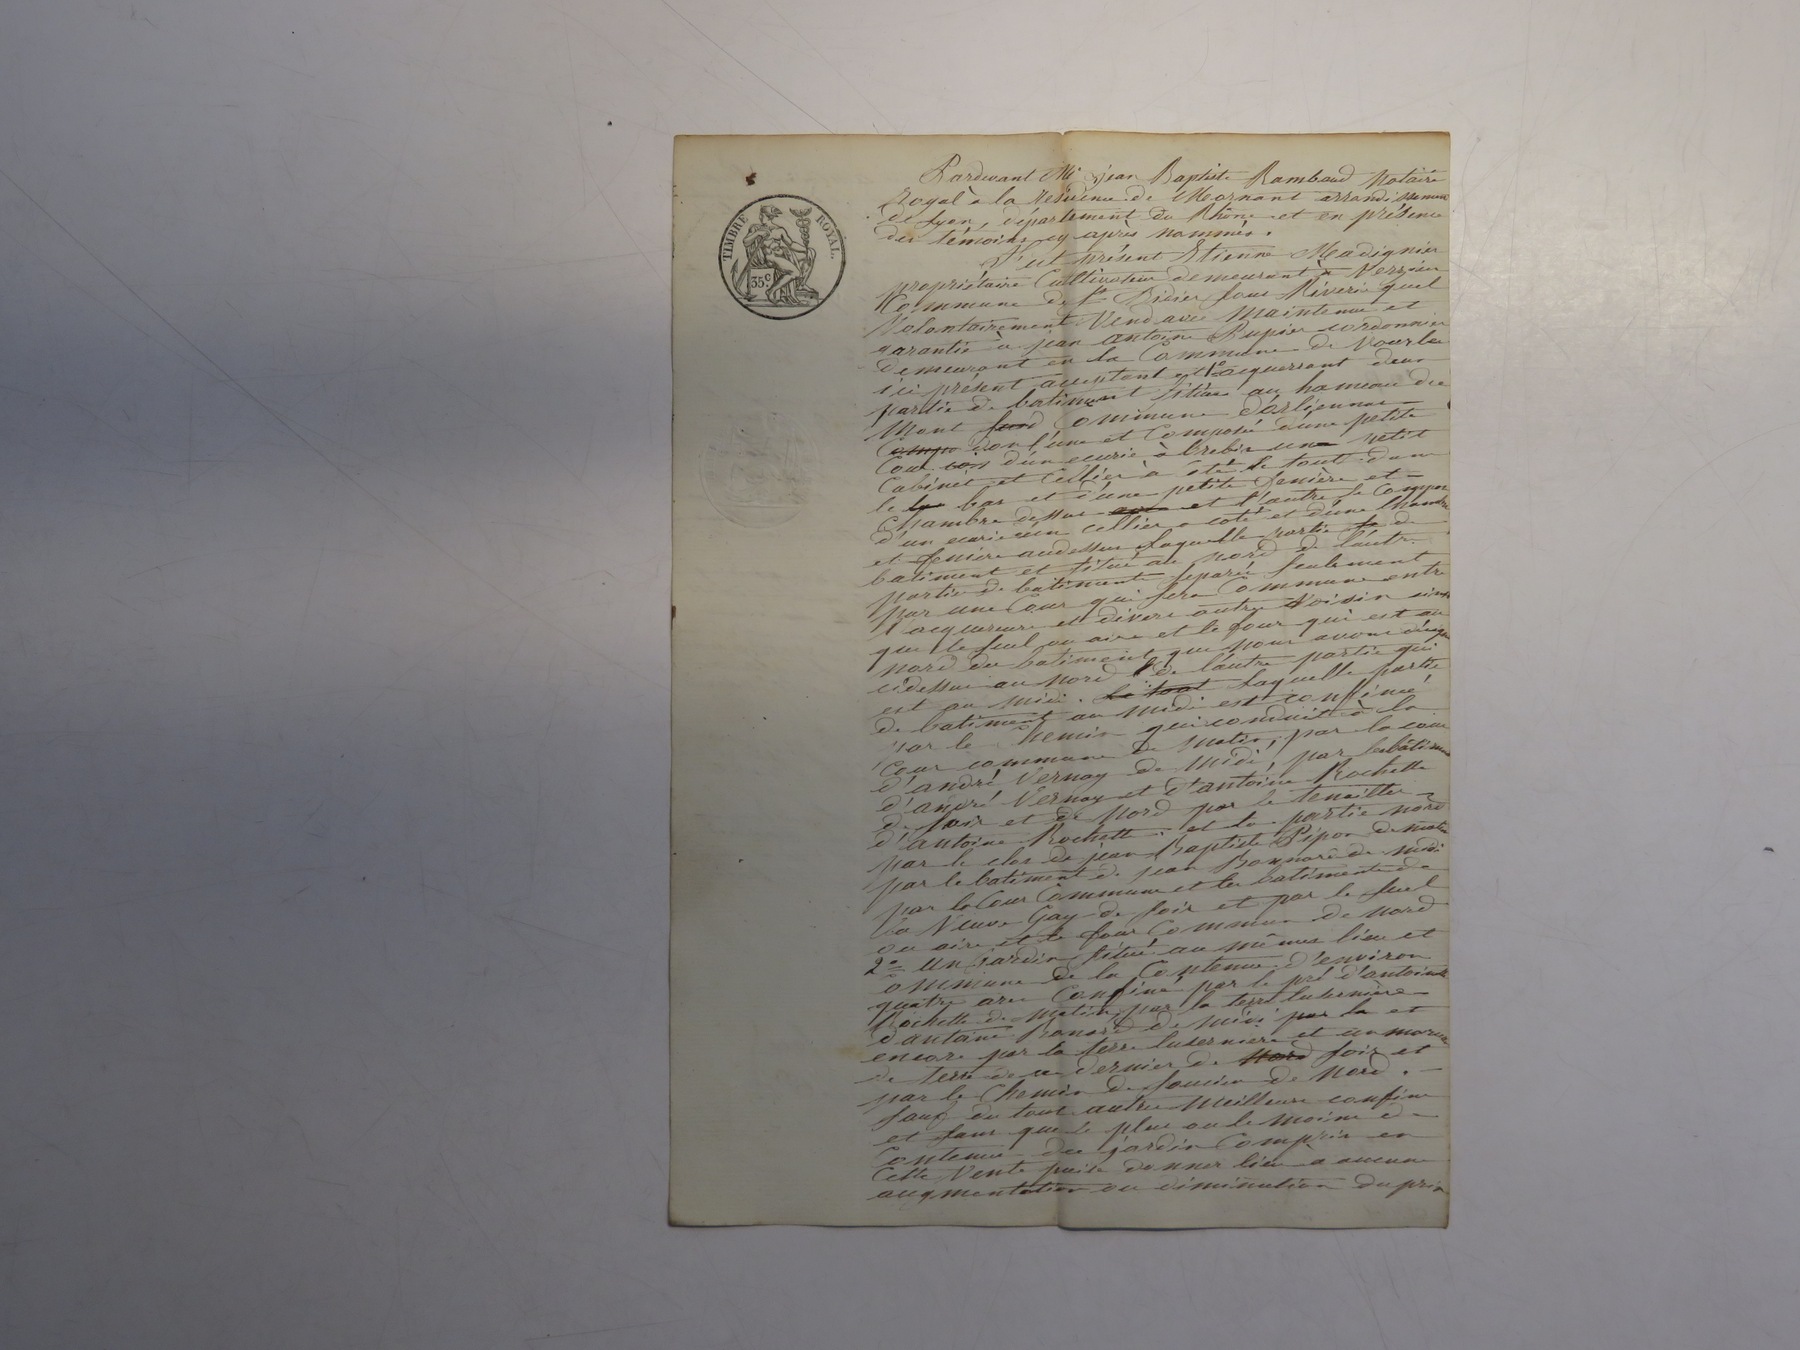 TIMBRE ROYAL.
35 c
Pardevant Me jean Baptiste Rambaud Notaire
Royal à la résidence de Mornant arrondissemen
de Lyon, département du Rhône et en présence
des témoins cy après nommés.
S'est présent Etienne Madignier
propriétaire Cultivateur demeurant à Verzieu
Commune de St Didier sous Riverie quel
Volontairement Vend avec Maintenue et
garantie à jean antoine Rupier cordonnier
demeurant en la Commune de Vourle
ici présent acceptant et 1° acquerrant deux
partie de batiment situés au hameau du
Mont Commune d'orliennas
don l'une et Composée d'une petite
Cour d'un ecurie à brebis un petit
Cabinet et Cellier à Côté le tout dans
le bas et d'une petite feniére et
Chambre dessus et l'autre se Compose
d'un ecurie un cellier a coté et d'une Chambre
et feniére audessus laquelle partie de
batiment et situé au nord de l'autre
partie de batiments separée seulement
par une Cour qui sera Commune entre
l'acquereure et divers autre Voisin ainsi
que le suel ou aire et le four qui est au
nord du batiment que nous avons désigné
cidessus au nord de l'autre partie qui
est au midi. le tout laquelle partie
de batiment au midi est confiné
par le Chemin qui conduit à la
Cour commune de matin, par la cour
d'andré Vernay de Midi, par les bâtimen
d'andré Vernay et d'antoine Rochette
de soir et de Nord par le tenaillier
d'antoine Rochette et la partie nord
par le clos de jean Baptiste Pipon de matin
par le batiment de jean Bonnard de midi
par la Cour Commune et les batiments de
la Veuve Gay de soir et par le suel
ou aire et le four Commun de nord
2° Un jardin situé au mêmes lieu et
Commune de la Contenue d'environ
quatre ares Confiné par le pré d'antoine
Rochette de matin, par la terre luzernière
d'antoine Bonard de midi par la et
encore par la terre luzerniere et un morceau
de terre de ce dernier de Nord soir et
par le Chemin de foucieu de Nord.
sauf du tout autre Meilleure confins
et sans que le plus ou le moins de
Contenue du jardin Compris en
Cette Vente puisse donner lieu a aucune
augmentation ou diminution du prix